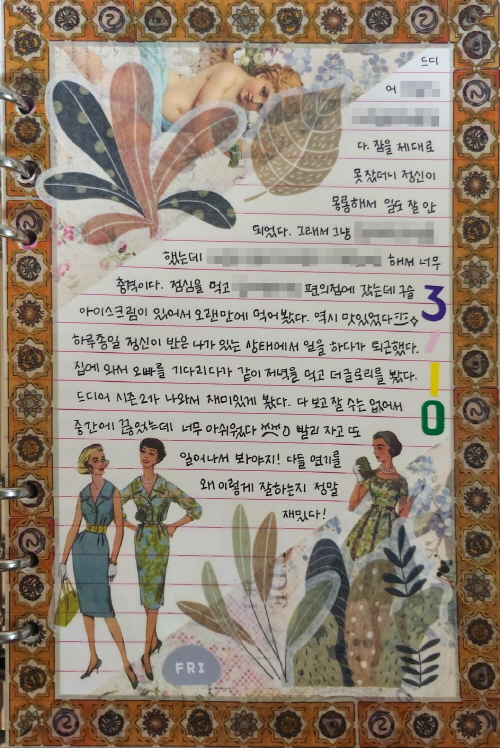 드디
어
다. 잠을 제대로
못 잤더니 정신이
몽롱해서 일도 잘 안
되었다. 그래서 그냥
했는데 해서 너무
충격이다. 점심을 먹고 편의점에 갔는데 구슬
아이스크림이 있어서 오랜만에 먹어봤다. 역시 맛있었다
하루종일 정신이 반은 나가 있는 상태에서 일을 하다가 퇴근했다.
집에 와서 오빠를 기다리다가 같이 저녁을 먹고 더글로리를 봤다.
드디어 시즌2가 나와서 재미있게 봤다. 다 보고 잘 수는 없어서
중간에 끊었는데 너무 아쉬웠다 빨리 자고 또
일어나서 봐야지! 다들 연기를
왜 이렇게 잘하는지 정말
재밌다!
3/10
FRI